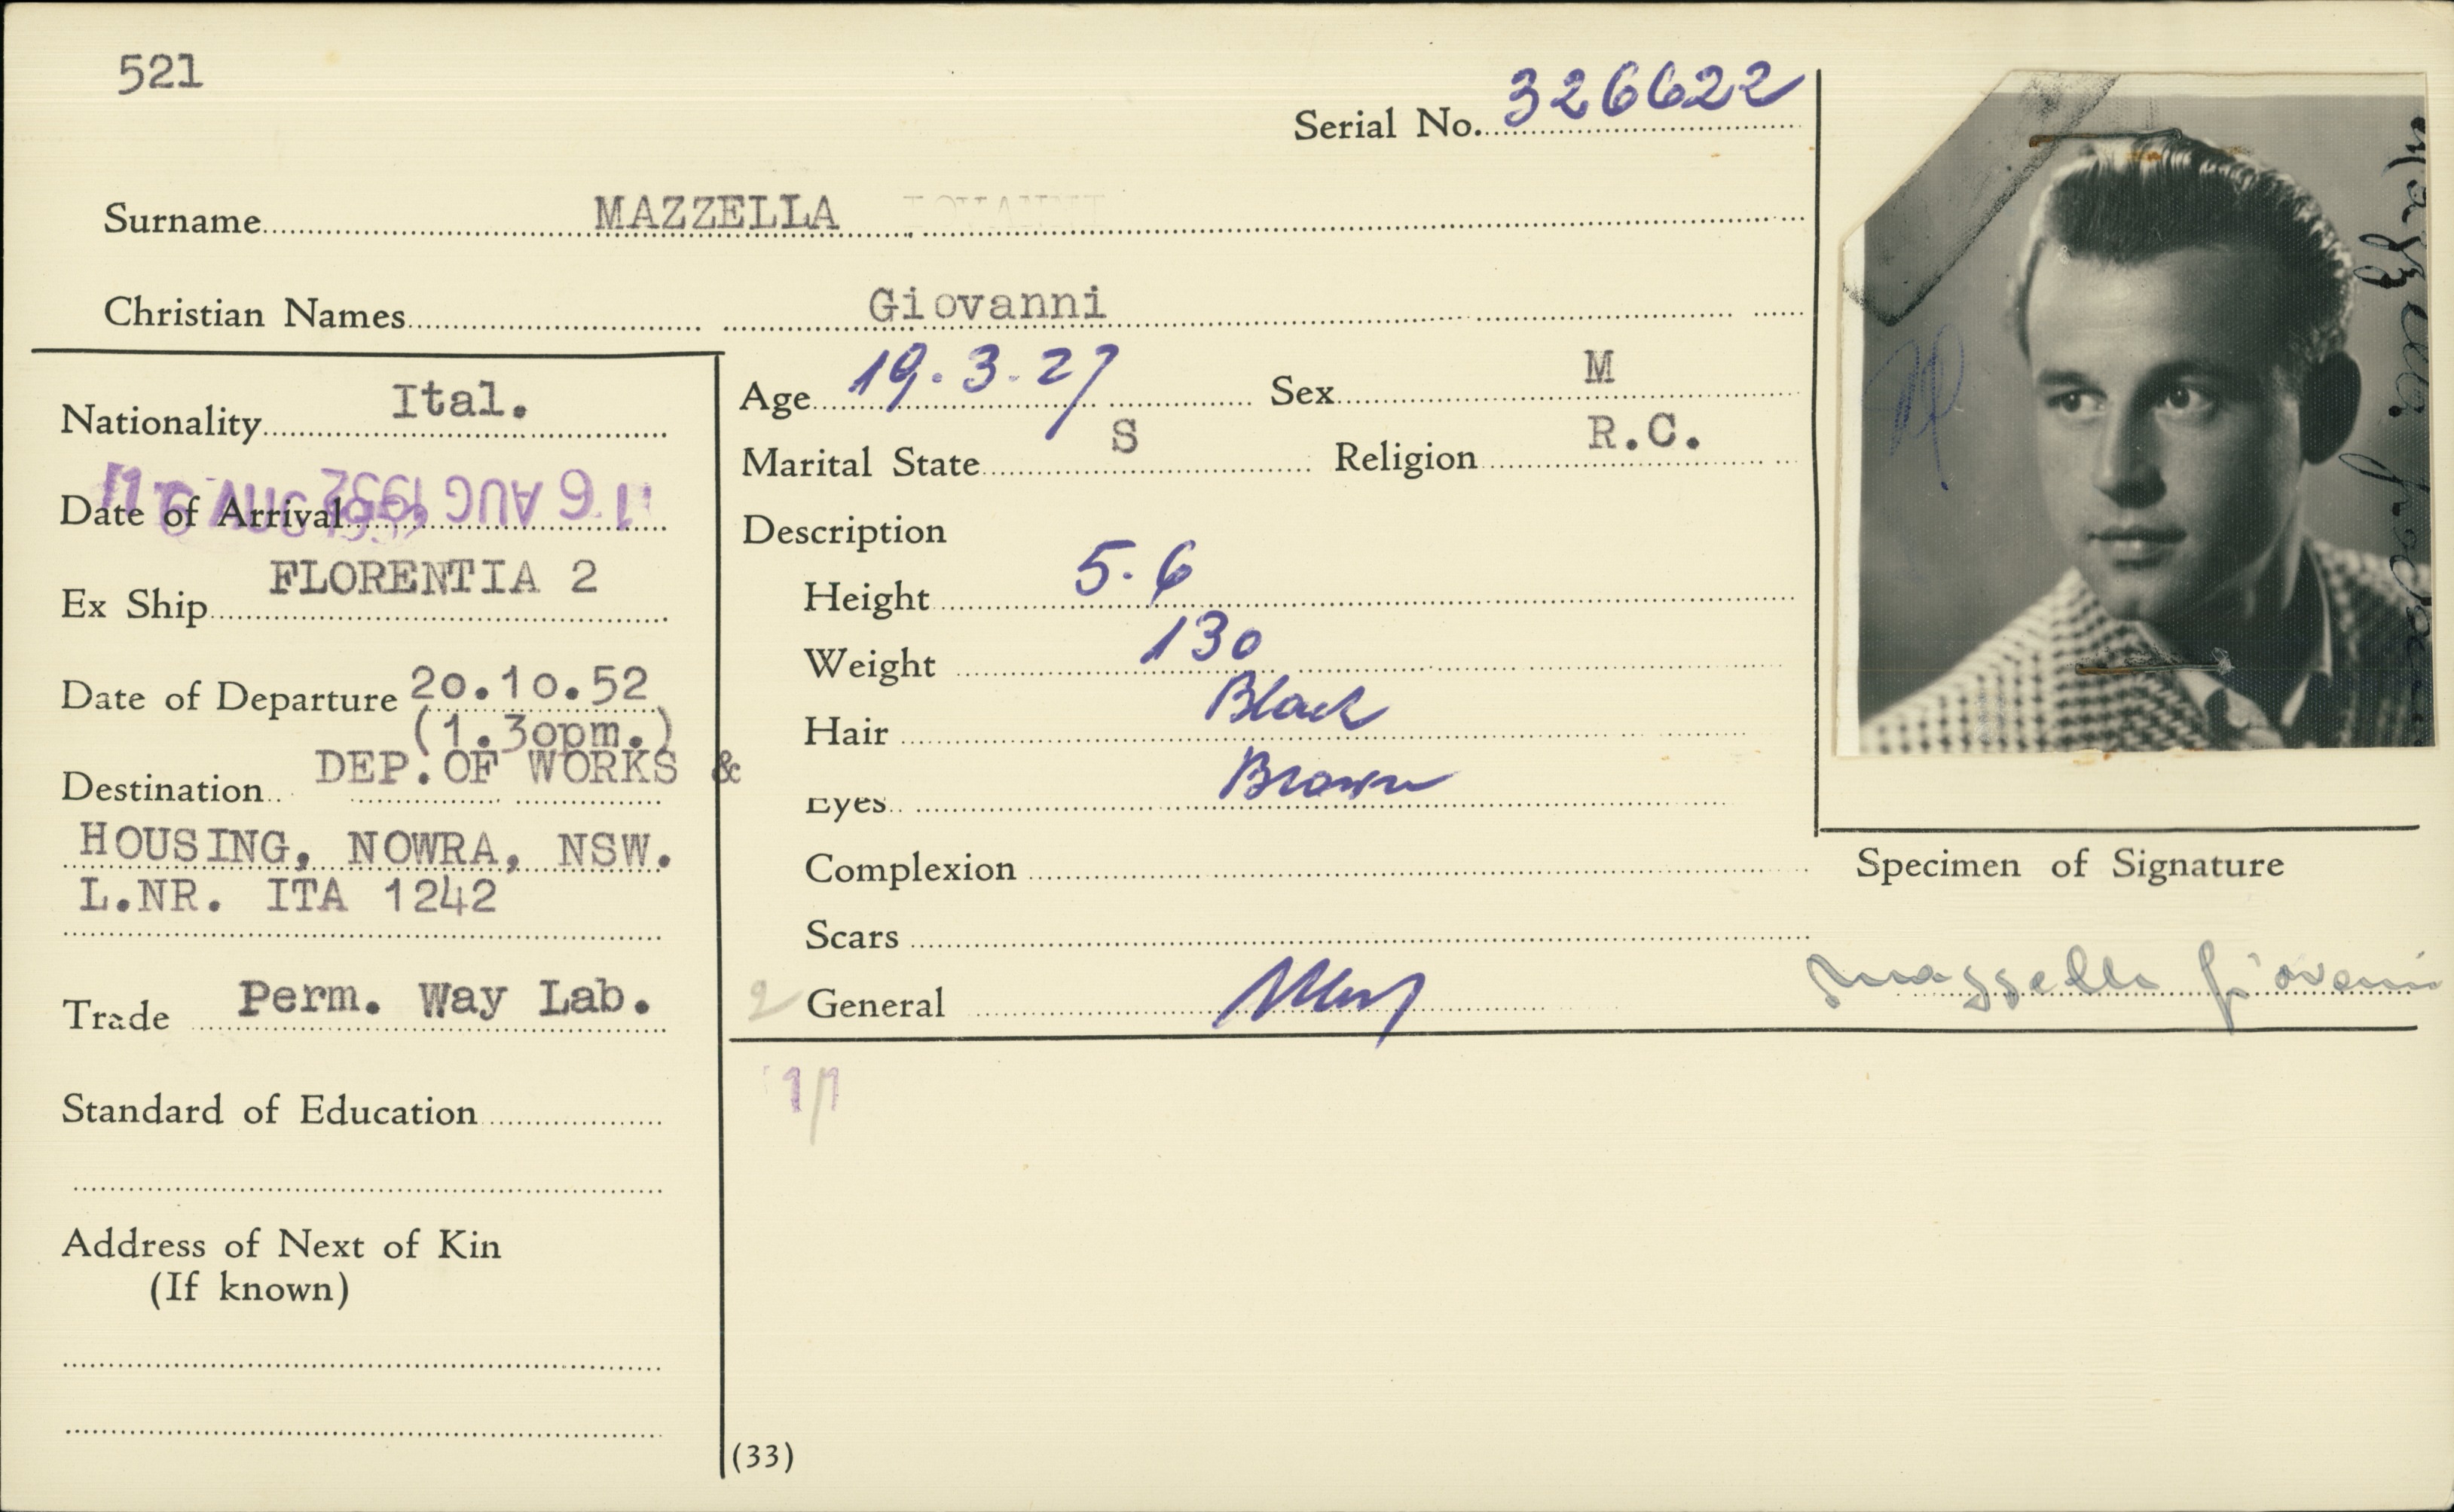 521
Serial No. 326622
Surname MAZZELLA
Christian Names Giovanni
Nationality Ital.
Date of Arrival 16 AUG 1952
Ex Ship FLORENTIA 2
Date of Departure 20.10.52
(1.30pm.)
Destination DEP. OF WORKS &
HOUSING, NOWRA, NSW.
L.NR. ITA 1242
Trade Perm. Way Lab.
Standard of Education
Address of Next of Kin
(If known)
Age 19.3.27 Sex M
Marital State S Religion R.C.
Description
Height 5.6
Weight 130
Hair Black
Eyes Brown
Complexion
Scars
2 General
1/1
(33)
Mazzella Giovanni
Specimen of Signature
Mazzella Giovanni